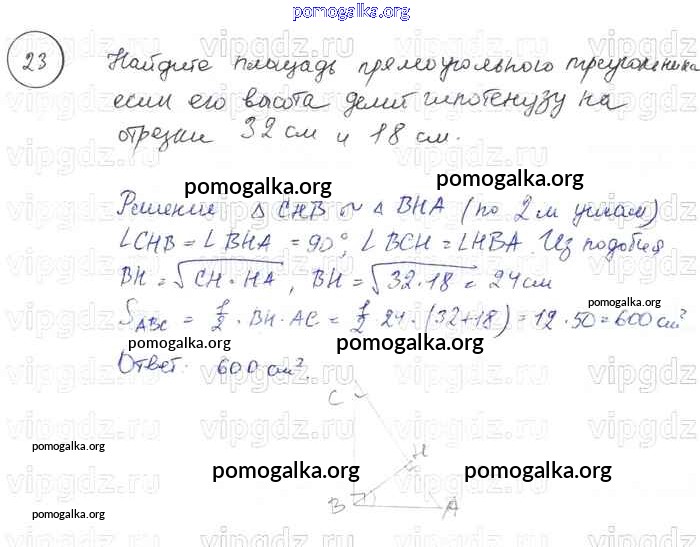 pomogalka.org
23
Найдите площадь прямоугольного треугольника
если его высота делит гипотенузу на
отрезки 32 см и 18 см.
pomogalka.org pomogalka.org
Решение △ CHB ~ △ BHA (по 2м углам)
∠CHB = ∠BHA = 90°, ∠BCH = ∠HBA. Из подобия
BH = √CH·HA, BH = √32·18 = 24см
pomogalka.org
S ABC = 1/2 · BH · AC = 1/2 · 24 · (32+18) = 12 · 50 = 600 см²
pomogalka.org
Ответ: 600 см².
C
pomogalka.org
H
pomogalka.org pomogalka.org
B A
pomogalka.org
vipgdz.ru